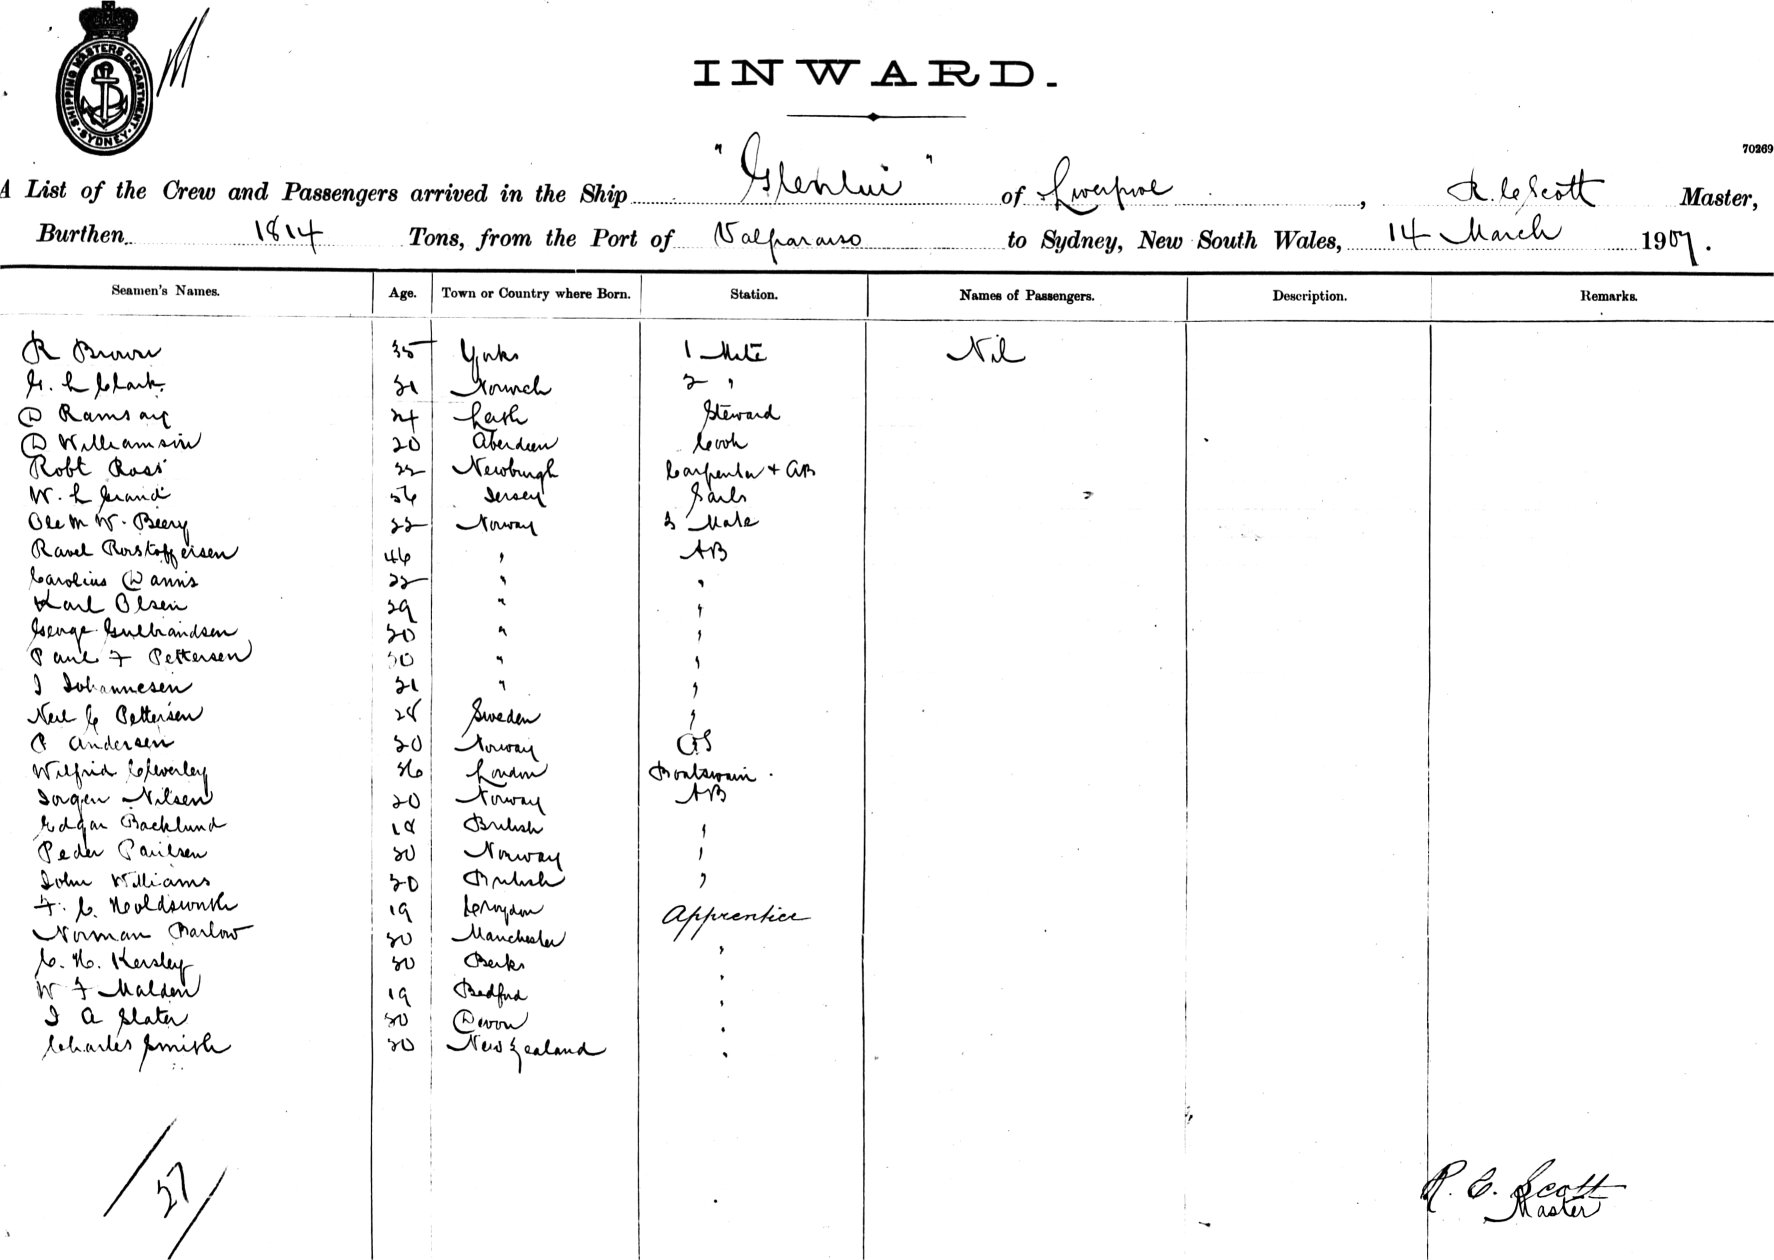 SHIPPING MASTERS DEPARTMENT · SYDNEY ·
INWARD.
70269
A List of the Crew and Passengers arrived in the Ship "Glenlui" of Liverpool, R. C Scott Master,
Burthen 1814 Tons, from the Port of Valparaiso to Sydney, New South Wales, 14 March 1907.
Seamen's Names. Age. Town or Country where Born. Station. Names of Passengers. Description. Remarks.
R Brown 35 Yorks 1 Mate Nil
G. L Clark 21 Norwich 2 "
D Ramsay 24 Leith Steward
D Williamson 20 Aberdeen Cook
Robt Ross 22 Newburgh Carpenter + AB
W. L 56 Jersey Sails
Ole M W. 22 Norway 3 Mate
46 " AB
22 " "
Karl Olsen 29 " "
George Gulbrandsen 20 " "
Paul F Pettersen " "
J Johannesen 21 " "
C Pettersen 28 Sweden "
P Andersen 20 Norway OS
Wilfrid Cleverley 36 London Boatswain
Jorgen Nilsen 20 Norway AB
Edgar Backlund 18 British "
Peder Paulsen 20 Norway "
John Williams 20 British "
F. C. Holdsworth 19 Croydon Apprentice
Norman Barlow 20 Manchester "
C. H. Kersley 20 Berks "
W F Malden 19 Bedford "
J A Slater 20 Devon "
Charles Smith 20 New Zealand "
27
R. C. Scott
Master